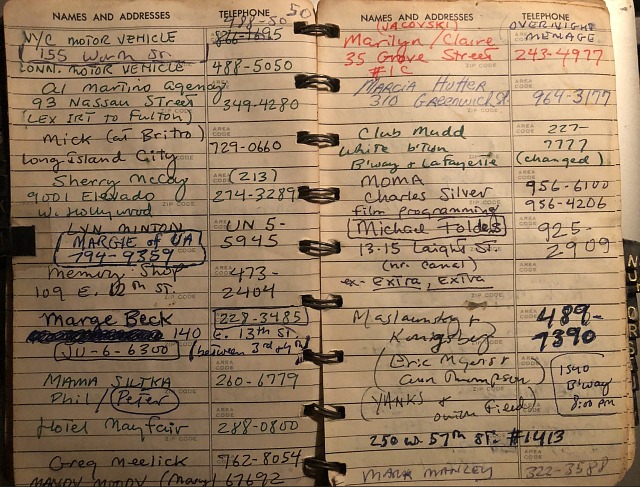 NAMES AND ADDRESSES TELEPHONE
488-50-50
N/C MOTOR VEHICLE
155 Worth St.
CONN. MOTOR VEHICLE 488-5050
Al Martino Agency
93 Nassau Street 349-4280
(LEX IRT to Fulton)
Mick (at Britro) 729-0660
Long Island City
Sherry McCoy (213)
9001 Elevado 274-3289
W. Hollywood
LYN MINTON UN 5-
5945
MARGIE of UA
794-9359
Memory Shop 473-
109 E. 12th ST. 2404
Marge Beck 228-3485
140 E. 13th ST.
JU-6-6300 (between 3rd & 4th)
MAMA SILIKA 260-6779
Phil / Peter
Hotel Mayfair 288-0800
Greg Meelick 762-8054
MANDY MOODY (Mary) 67692
NAMES AND ADDRESSES TELEPHONE
(JACOVSKI) OVERNIGHT
MENAGE
Marilyn/Claire 243-4977
35 Grove Street
#1C
Marcia Hutter 964-3177
310 Greenwich St.
Club Mudd 227-
White & 7777
B'way & Lafayette (changed)
MOMA 956-6100
Charles Silver 956-4206
film programming
Michael Folders 925-
13-15 Laight St 2909
(nr. canal)
ex- EXTRA, EXTRA
Maslansky & 489-
Konigsberg 7390
(Eric Myers &
Ann Thompson) 1540
B'way
8:00 PM
(YANKS &
250 W. 57th ST. #1413
MARK MANLEY 322-3588